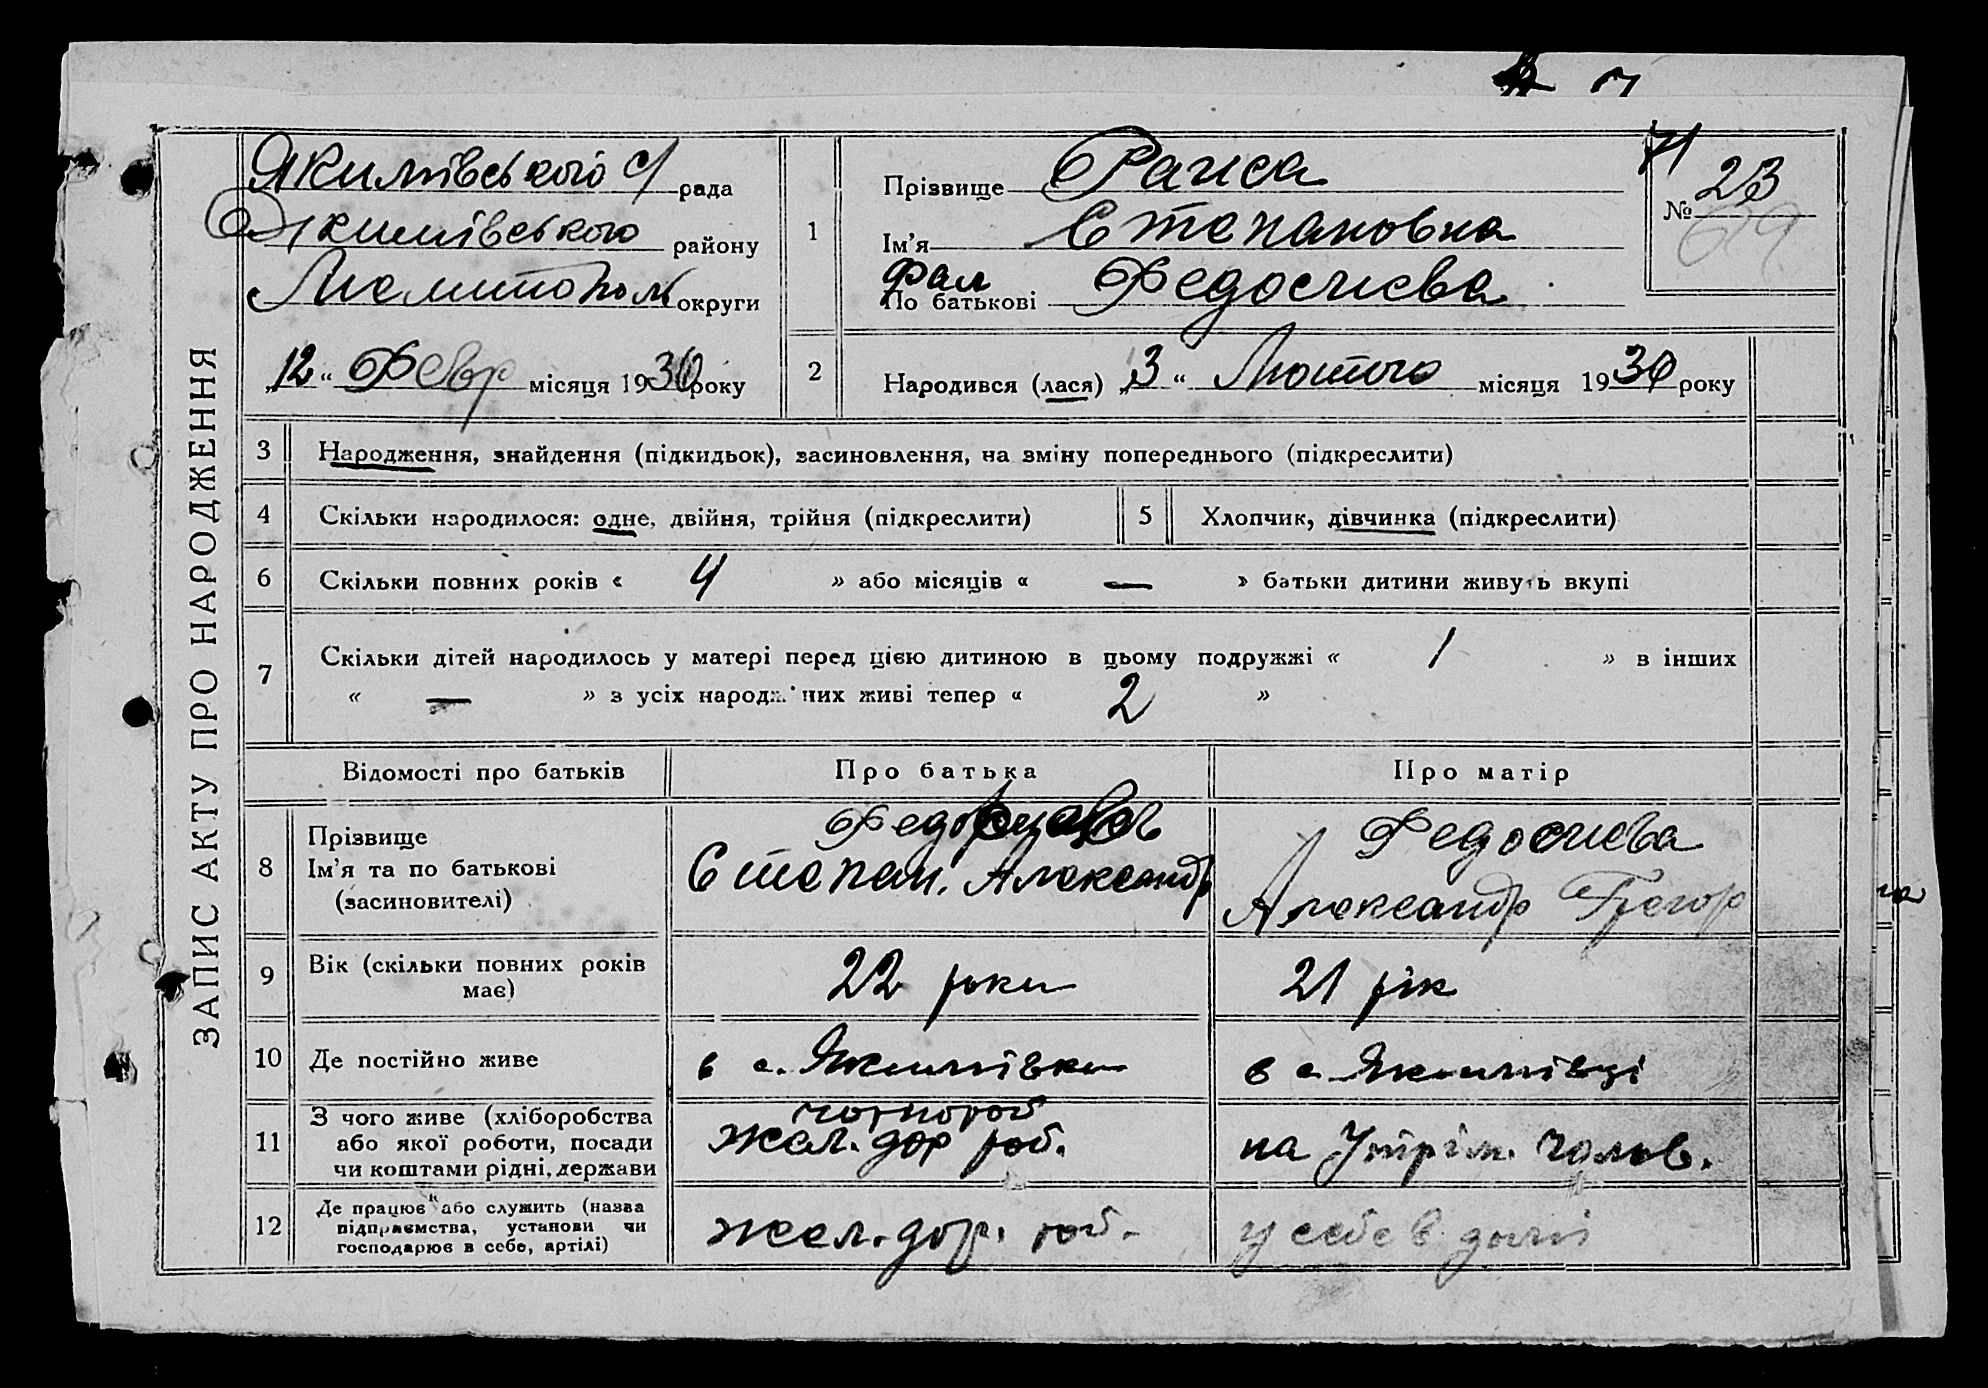 ЗАПИС АКТУ ПРО НАРОДЖЕННЯ
Якимівського с/ рада
Якимівського району
Мелитополь округи
„12“ Февр місяця 1930 року
1
Прізвище Раиса
Ім'я Степановна
Фам
По батькові Федосиева
71
№ 23
2
Народився (лася) „3“ Лютого місяця 1930 року
3 Народження, знайдення (підкидьок), засиновлення, на зміну попереднього (підкреслити)
4 Скільки народилося: одне, двійня, трійня (підкреслити)
5 Хлопчик, дівчинка (підкреслити)
6 Скільки повних років « 4 » або місяців « — » батьки дитини живуть вкупі
7 Скільки дітей народилось у матері перед цією дитиною в цьому подружжі « 1 » в інших
« — » з усіх народжених живі тепер « 2 »
Відомості про батьків
Про батька
Про матір
8 Прізвище
Ім'я та по батькові
(засиновителі)
Степан. Александр
Федосиева
Александр Григор
9 Вік (скільки повних років
має)
22 роки
21 рік
10 Де постійно живе
в с. Якимівки
в с. Якимівці
11 З чого живе (хліборобства
або якої роботи, посади
чи коштами рідні, держави
чорнороб
жел. дор роб.
на Утрім. чолов.
12 Де працює або служить (назва
підприємства, установи чи
господарює в себе, артілі)
жел. дор. роб.
у себе в домі